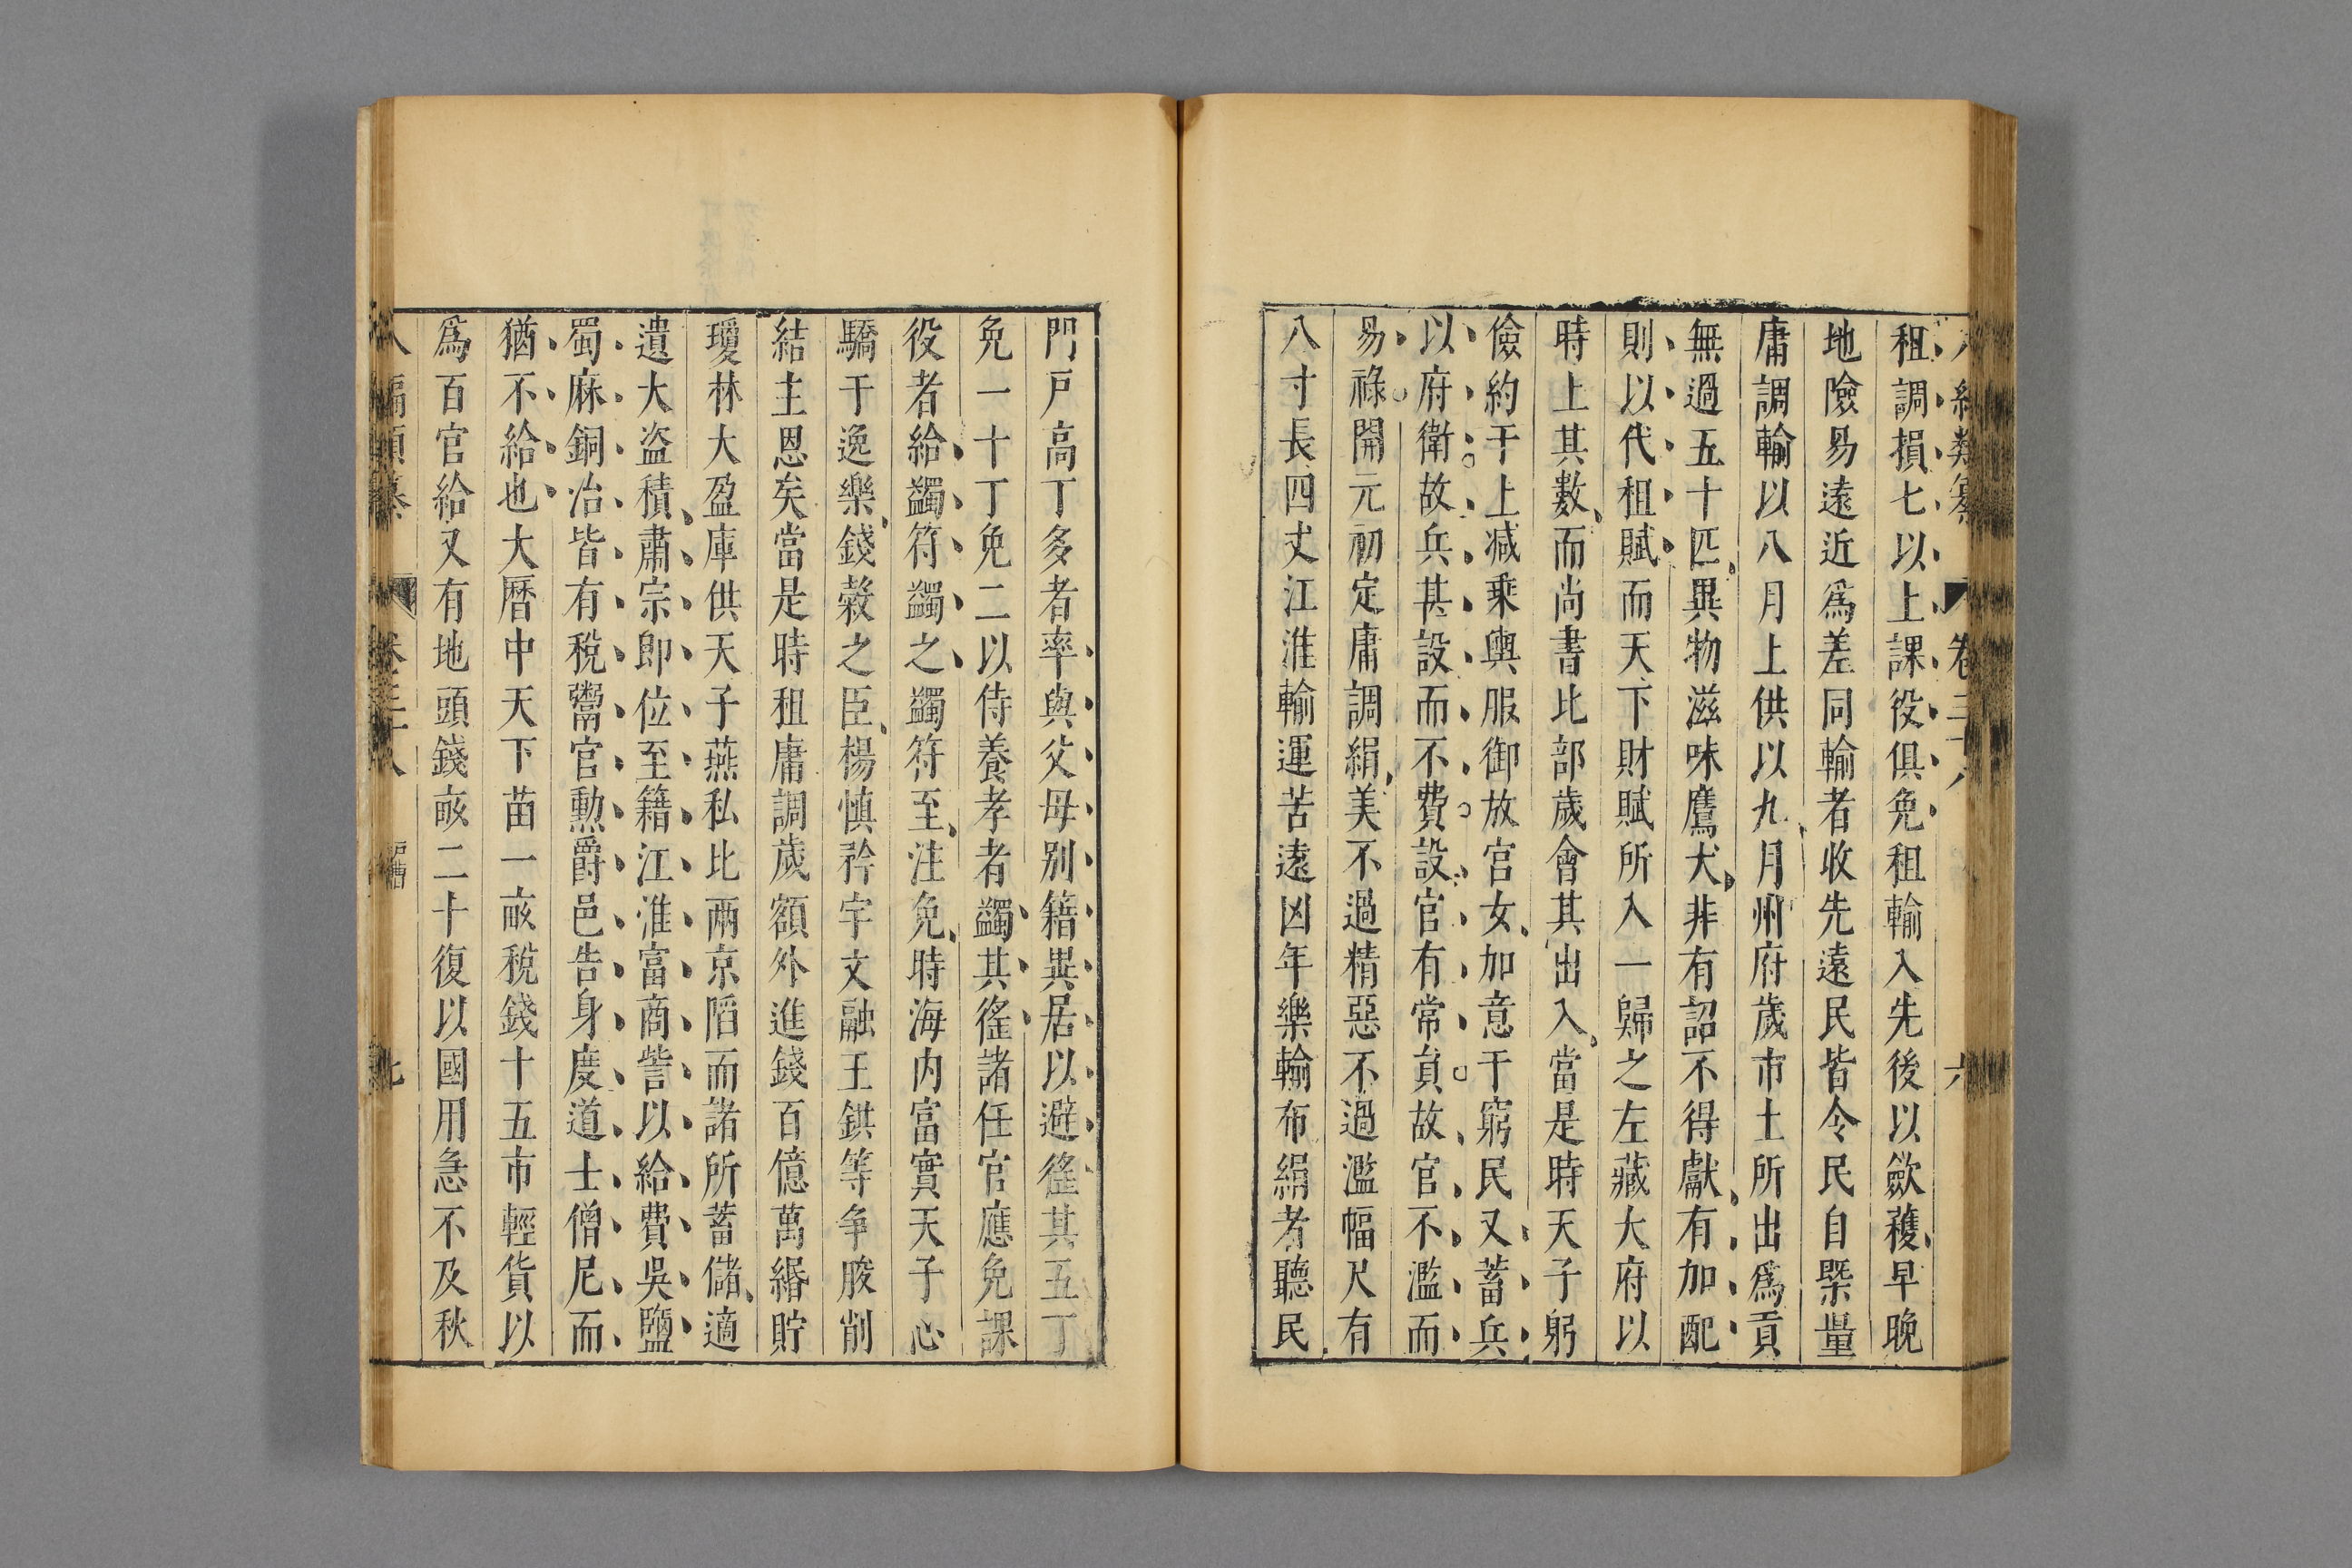 租調損七以上課役俱免租輸入先後以歛穫早晚
地險易遠近爲差同輸者收先遠民皆令民自槩量
庸調輸以八月上供以九月州府歲市土所出爲貢
無過五十匹異物滋味鷹犬非有詔不得獻有加配
則以代租賦而天下財賦所入一歸之左藏大府以
時上其數而尚書比部歲會其出入當是時天子躬
儉約于上减乗輿服御放宫女加意于窮民又蓄兵
以府衛故兵甚設而不費設官有常負故官不濫而
易祿開元初定庸調絹美不過精惡不過濫幅尺有
八寸長四丈江淮輸運苦遠凶年樂輸布絹者聽民
門戸高丁多者率與父母别籍異居以避徭其五丁
免一十丁免二以侍養孝者蠲其徭諸任官應免課
役者給蠲符蠲之蠲符至注免時海内富實天子心
驕于逸樂錢穀之臣楊慎矜宇文融王鉷等争朘削
結主恩矣當是時租庸調歲額外進錢百億萬緡貯
瓊林大盈庫供天子燕私比兩京䧟而諸所蓄儲適
遺大盗積肅宗即位至籍江淮富商訾以給費吳鹽
蜀麻銅冶皆有稅鬻官勲爵邑告身度道士僧尼而
猶不給也大曆中天下苗一畝稅錢十五市輕貨以
爲百官給又有地頭錢畝二十復以國用急不及秋